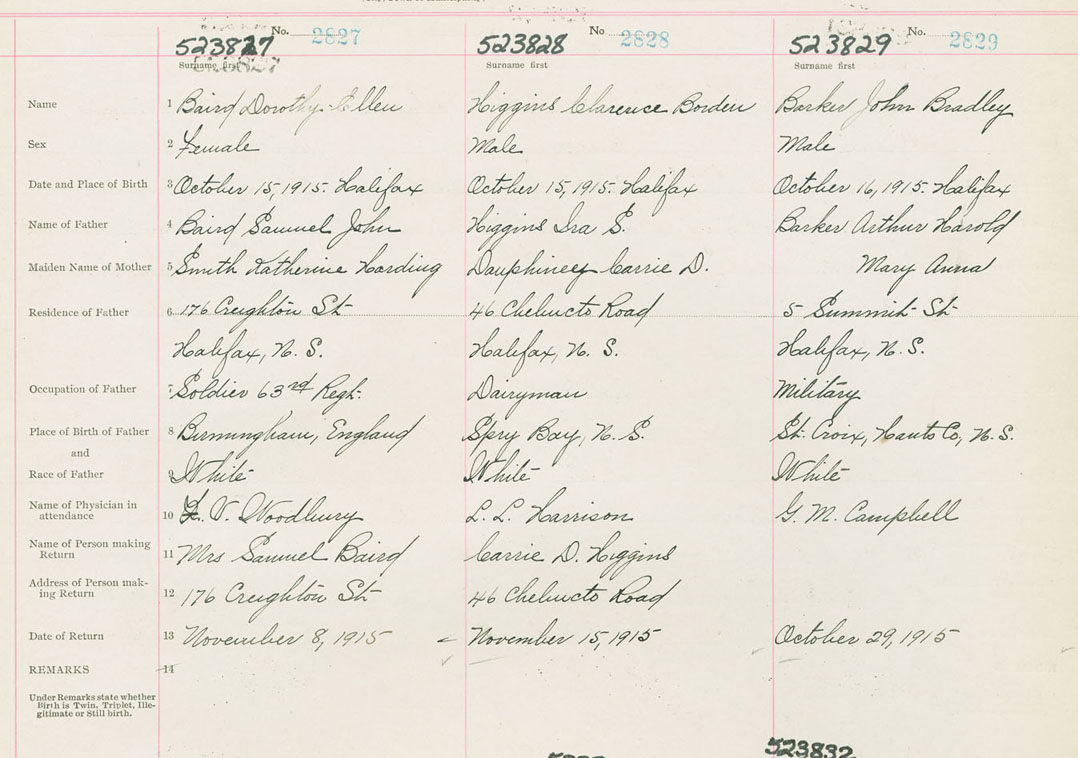 No. 2827 No. 2828 No. 2829
523827 523828 523829
Surname first Surname first Surname first
Name 1 Baird Dorothy Ellen Higgins Clarence Borden Barker John Bradley
Sex 2 Female Male Male
Date and Place of Birth 3 October 15, 1915. Halifax October 15, 1915. Halifax October 16, 1915. Halifax
Name of Father 4 Baird Samuel John Higgins Ira S. Barker Arthur Harold
Maiden Name of Mother 5 Smith Katherine Harding Dauphiney Carrie D. Mary Anna
Residence of Father 6 176 Creighton St 46 Chebucto Road 5 Summit St
Halifax, N. S. Halifax, N. S. Halifax, N. S.
Occupation of Father 7 Soldier 63rd Regt. Dairyman Military
Place of Birth of Father 8 Birmingham, England Spry Bay, N. S. St. Croix, Hants Co, N. S.
and
Race of Father 9 White White White
Name of Physician in
attendance 10 V. Woodbury L. L. Harrison G. M. Campbell
Name of Person making
Return 11 Mrs Samuel Baird Carrie D. Higgins
Address of Person mak-
ing Return 12 176 Creighton St 46 Chebucto Road
Date of Return 13 November 8, 1915 November 15, 1915 October 29, 1915
REMARKS 14
Under Remarks state whether
Birth is Twin, Triplet, Ille-
gitimate or Still birth.
523832